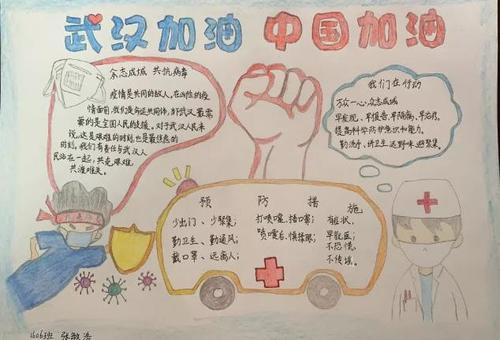 武汉加油 中国加油
众志成城 共抗病毒
疫情是共同的敌人,在凶险的疫
情面前,我们是命运共同体,武汉最需
要的是全国人民的支援。对于武汉人民来
说,这是艰难的时刻,也是最焦虑的
时刻,我们有责任与武汉人
民站在一起,共克艰难,
共渡难关。
我们在行动
万众一心,众志成城
早发现,早报告,早隔离,早治疗。
提高科学防护意识和能力。
勤洗手,讲卫生,远野味,避聚集。
预 防 措 施
少出门、少聚集;
勤卫生、勤通风;
戴口罩、远离人;
打喷嚏、捂嘴;
喷嚏后、慎揉眼;
有症状,
早就医;
不恐慌,
不传谣。
1606班 张敬浩